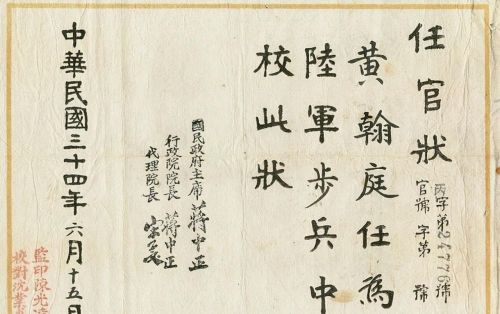 任官狀
丙字第24776號
官號 字第 號
黃翰庭任為
陸軍步兵中
校此狀
國民政府主席 蔣中正
行政院院長 蔣中正
代理院長 宋子文
中華民國三十四年六月十五日
監印陳光
校對沈